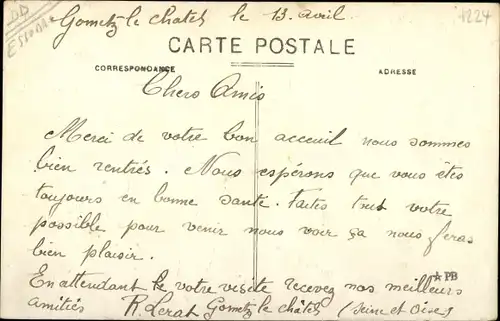 DD
ESSONNE
Gometz le chatel le 13 avril
1224
CARTE POSTALE
CORRESPONDANCE
ADRESSE
Chers Amis
Merci de votre bon acceuil nous sommes
bien rentrés. Nous espérons que vous êtes
toujours en bonne santé. Faites tout votre
possible pour venir nous voir ça nous feras
bien plaisir.
★ PB
En attendant le votre visite recevez nos meilleurs
amitiés R. Lerat Gometz le châtel (Seine et Oise)